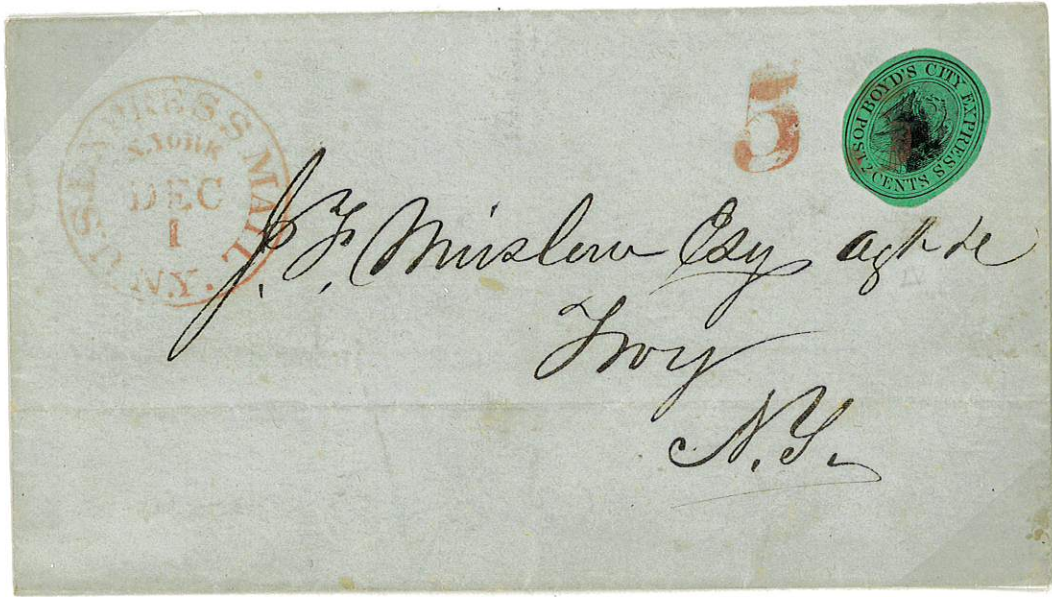 U.S. EXPRESS MAIL
N. YORK
DEC
1
N.Y.
5
BOYD'S CITY EXPRESS
POST 2 CENTS
J. F. Winslow Esq agt &c
Troy
N.Y.